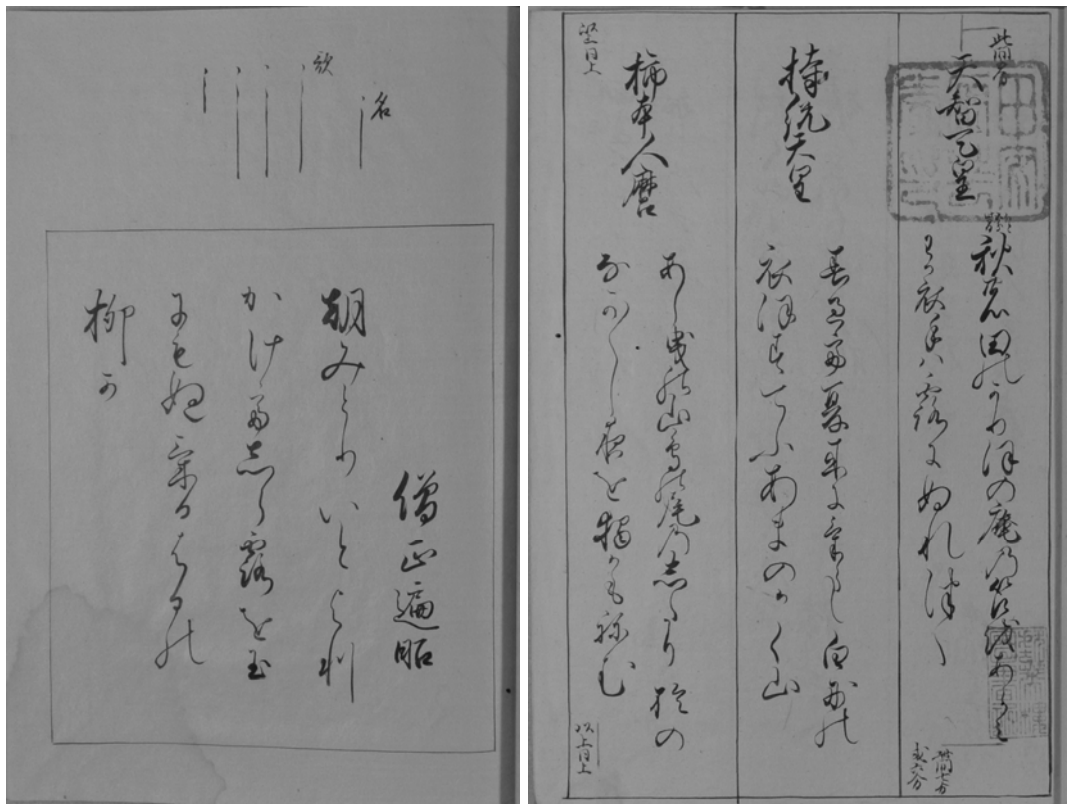 天智天皇
秋の田のかりほの庵乃苫越あらみ
わか衣手ハ露にぬれつゝ
持統天皇
春過て夏来にけらし白妙の
衣ほすてふあまのかく山
柿本人麿
あし曳の山鳥の尾乃志たり於の
なか〳〵し夜を獨かも祢む
以上同上
名
歌
僧正遍昭
朝みとりいとよ利
かけて志ら露を玉
にもぬける春の
柳か